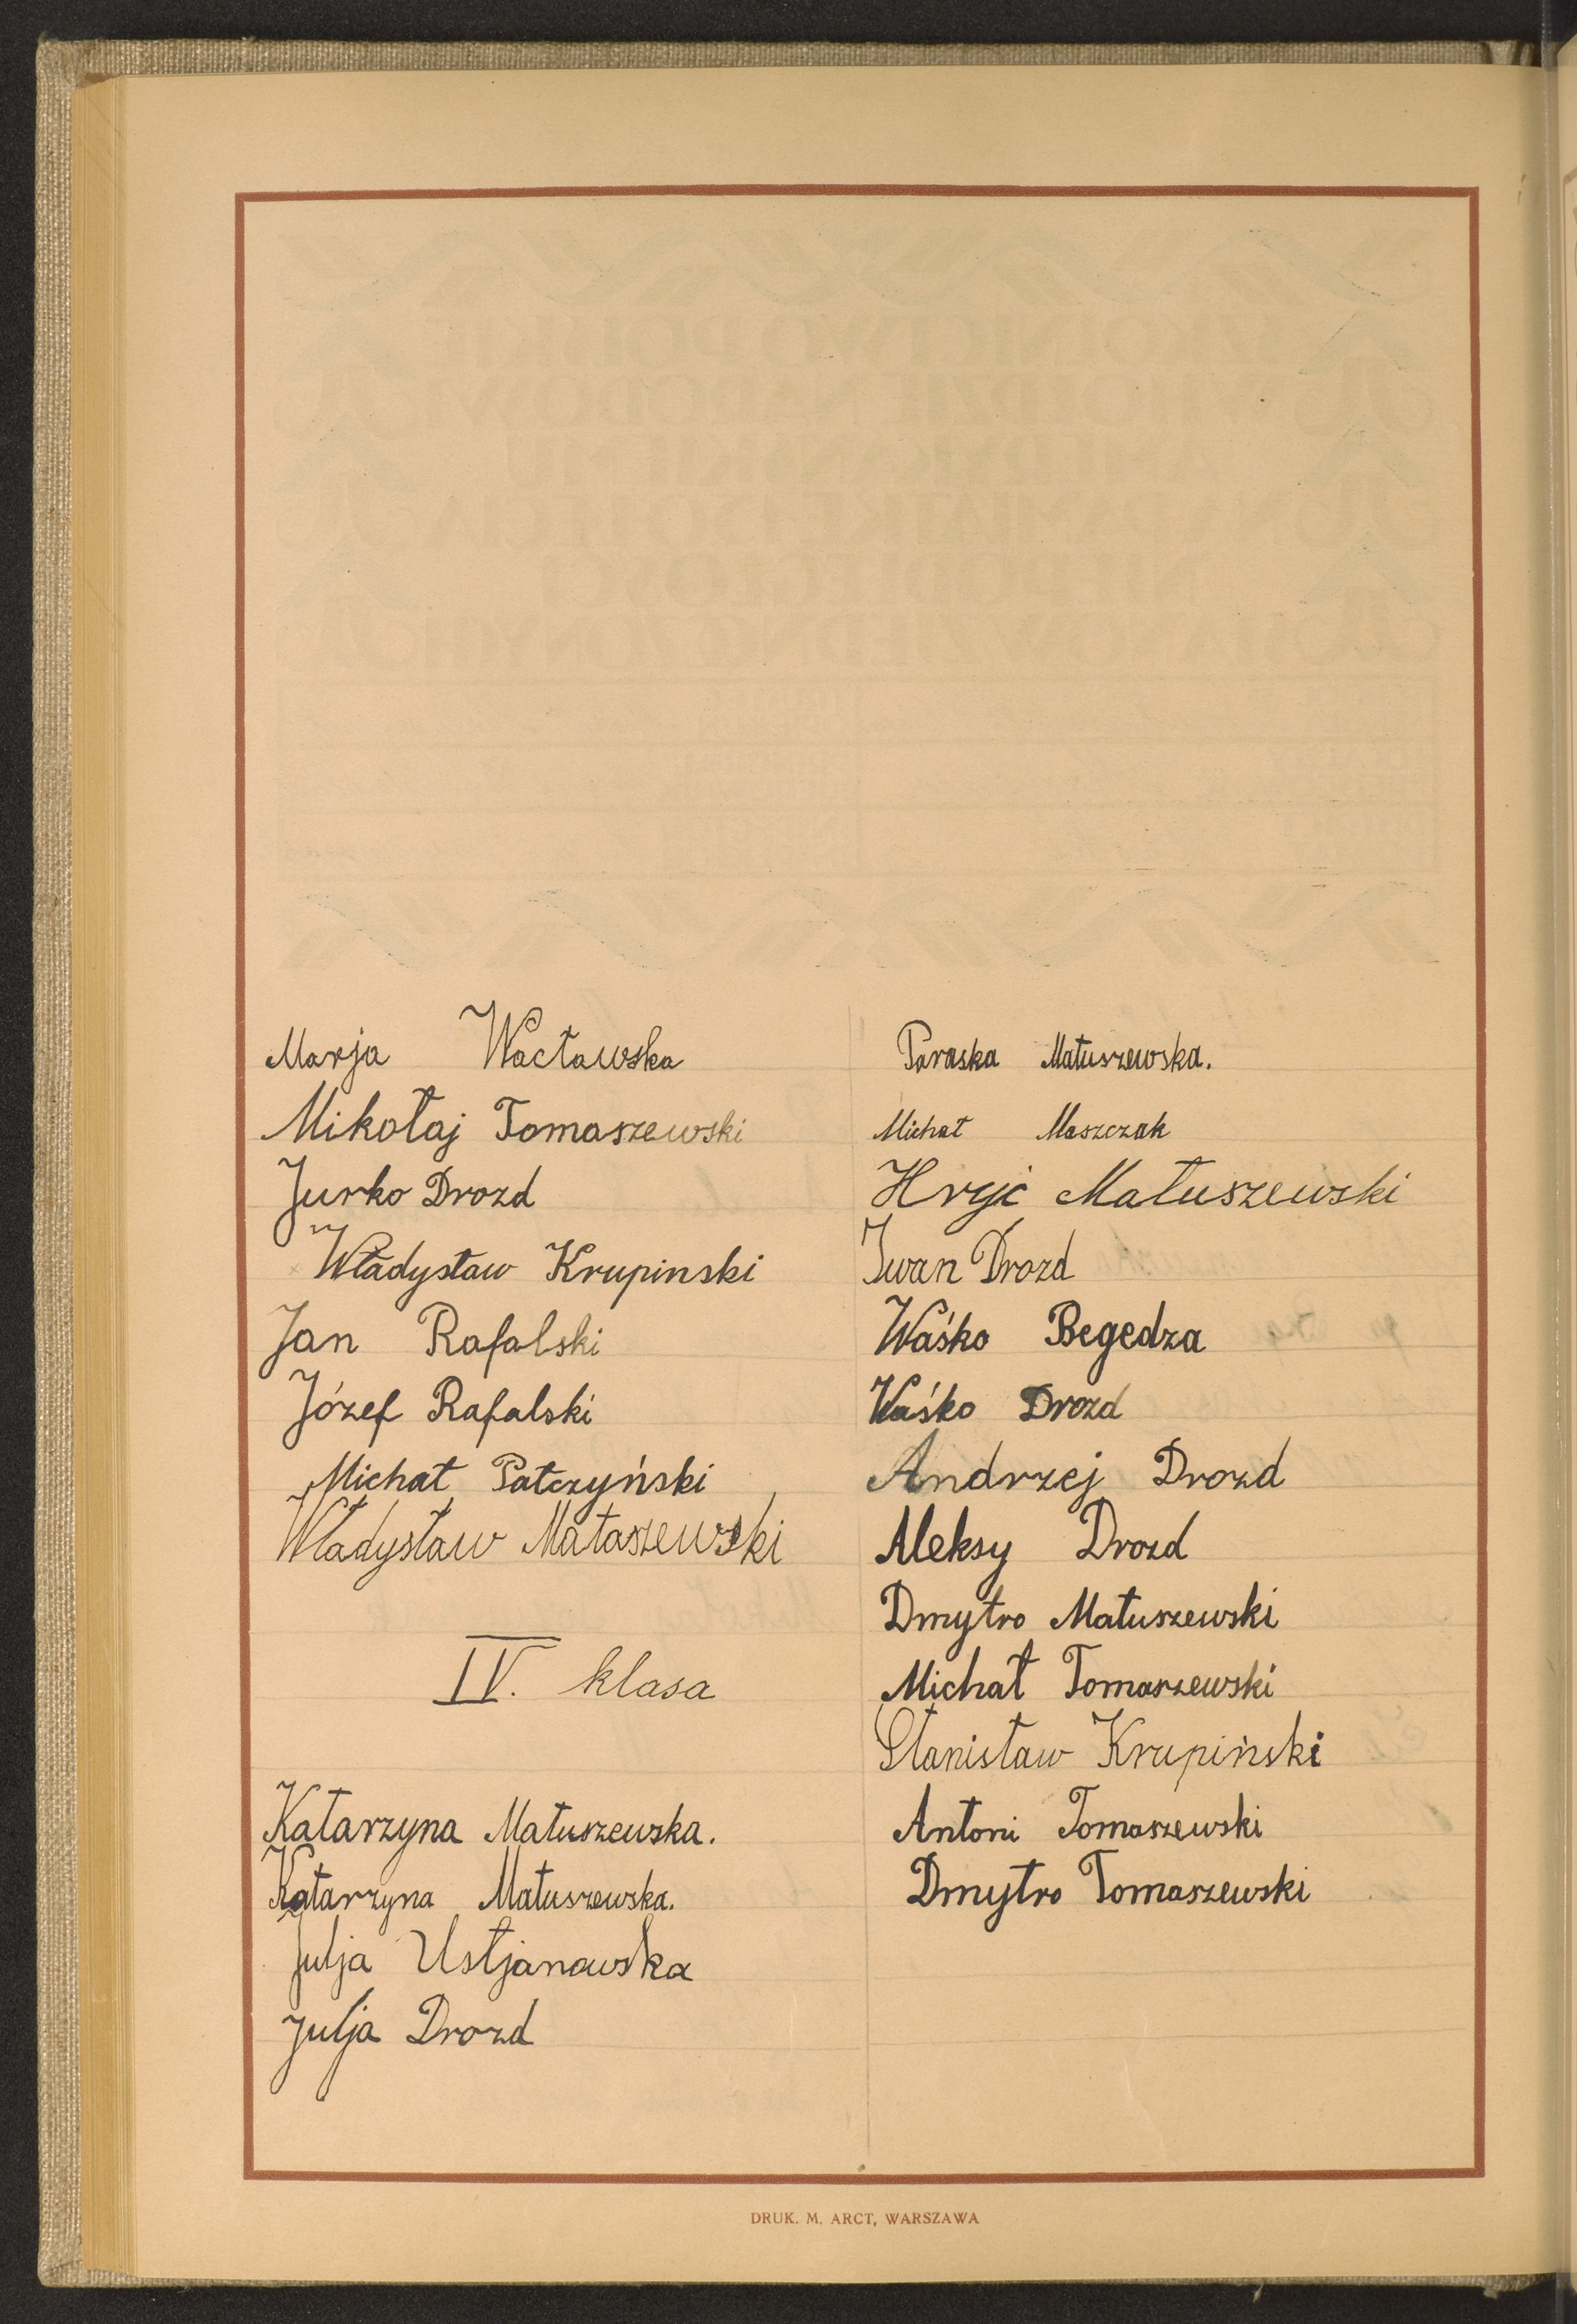 Marja Wacławska
Mikołaj Tomaszewski
Jurko Drozd
Władysław Krupinski
Jan Rafalski
Józef Rafalski
Michał Patczyński
Władysław Mataszewski
IV. klasa
Katarzyna Matuszewska.
Katarzyna Matuszewska.
Julja Ustjanowska
Julja Drozd
Paraska Matuszewska.
Michał Maszczak
Hryć Matuszewski
Iwan Drozd
Waśko Begedza
Waśko Drozd
Andrzej Drozd
Aleksy Drozd
Dmytro Matuszewski
Michał Tomaszewski
Stanisław Krupiński
Antoni Tomaszewski
Dmytro Tomaszewski
DRUK. M. ARCT, WARSZAWA